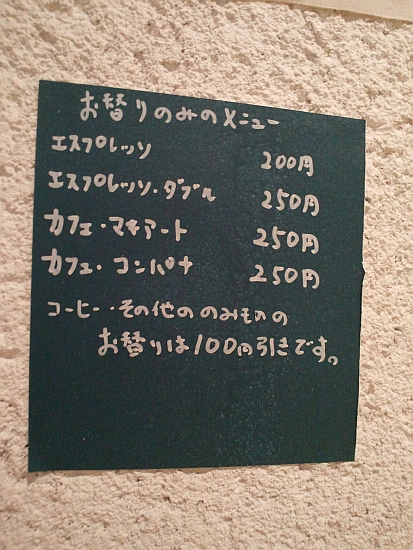 お替りのみのメニュー
エスプレッソ 200円
エスプレッソ・ダブル 250円
カフェ・マキアート 250円
カフェ・コンパナ 250円
コーヒー・その他ののみものの
お替りは100円引きです。